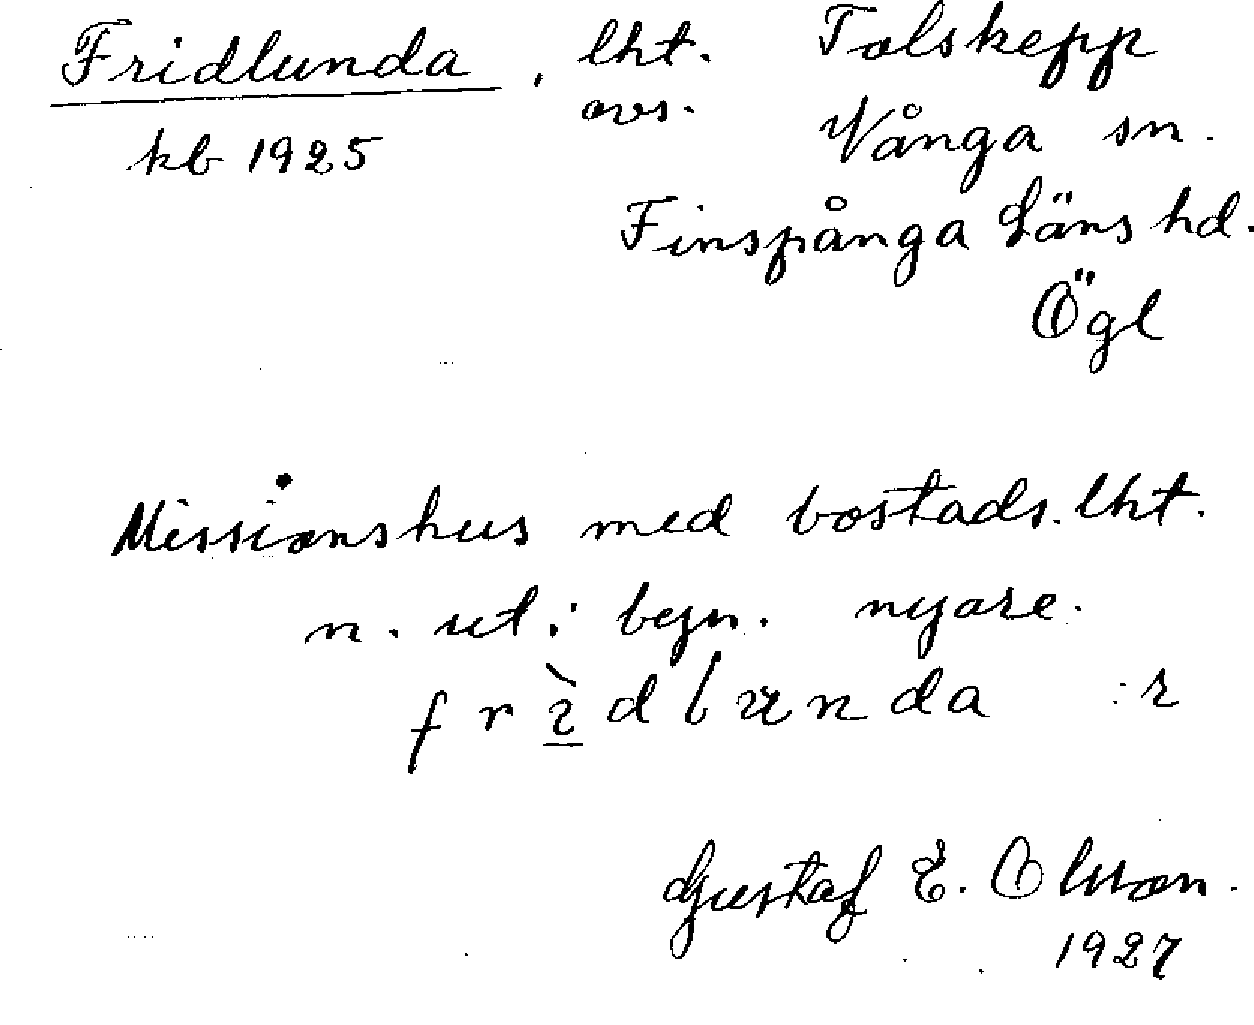 Fridlunda, lht. Tolskepp
avs. Vånga sn.
kb 1925
Finspånga Läns hd.
Ögl
Missionshus med bostads.lht.
n. ut; begn. nyare.
frìdlunda :r
Gustaf E. Olsson.
1927